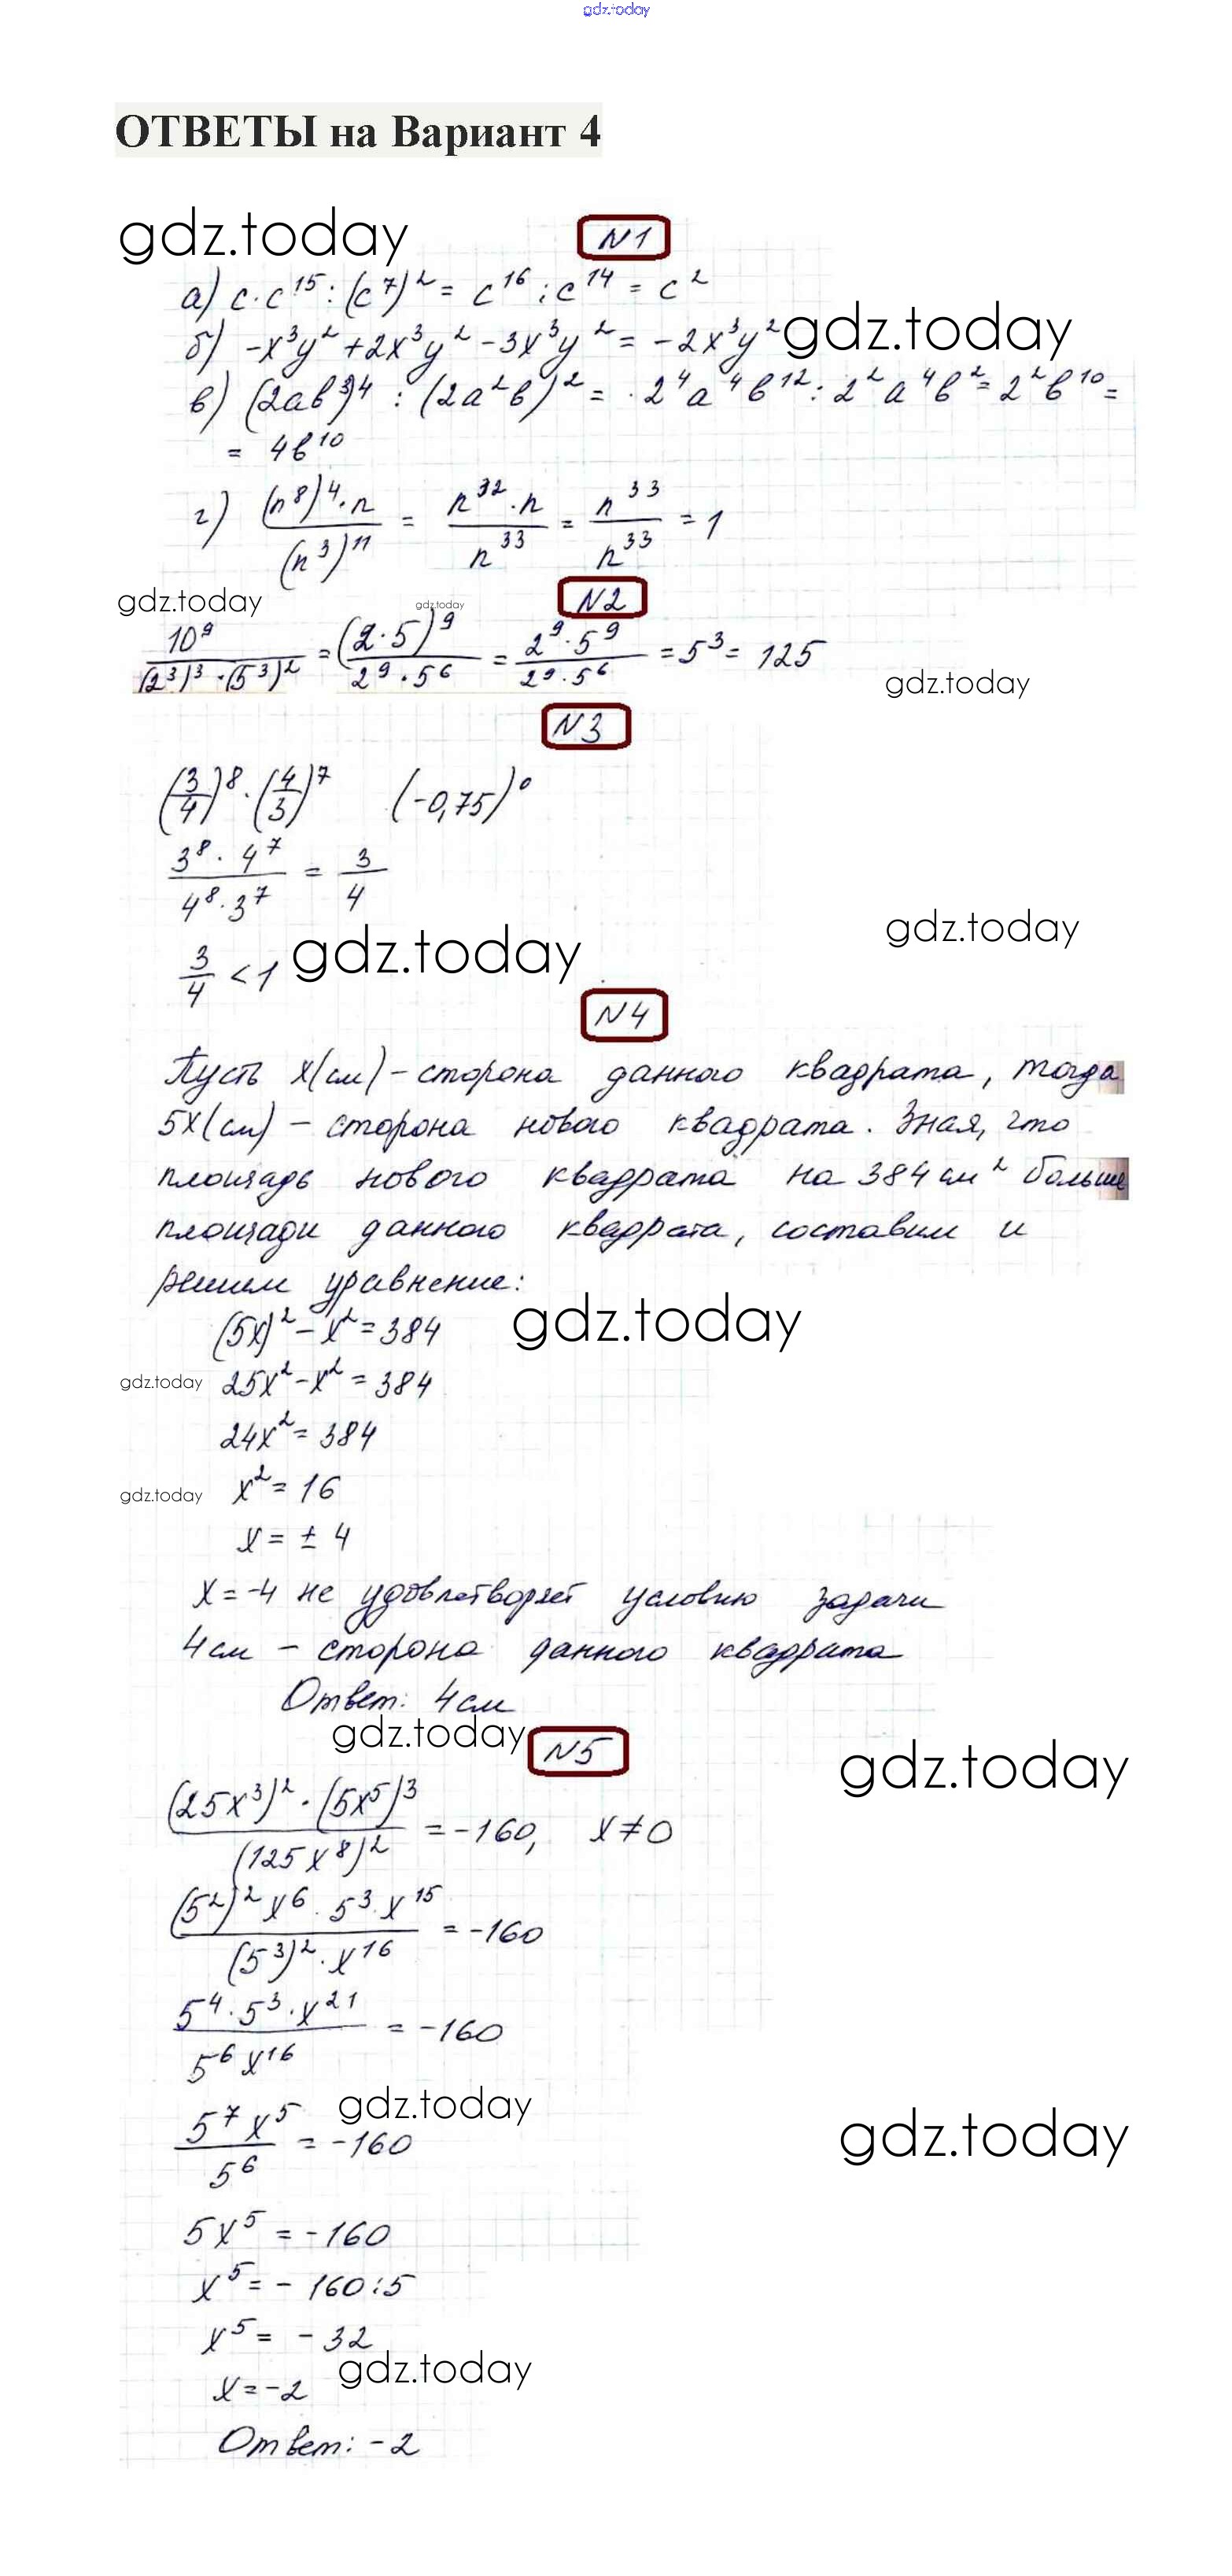 gdz.today
ОТВЕТЫ на Вариант 4
gdz.today
N1
а) c·c¹⁵:(c⁷)² = c¹⁶:c¹⁴ = c²
б) -x³y²+2x³y²-3x³y² = -2x³y²
gdz.today
в) (2ab³)⁴ : (2a²b)² = ·2⁴a⁴b¹²:2²a⁴b² = 2²b¹⁰ =
= 4b¹⁰
г) (n⁸)⁴·n / (n³)¹¹ = n³²·n / n³³ = n³³ / n³³ = 1
gdz.today
gdz.today
N2
10⁹ / (2³)³·(5³)² = (2·5)⁹ / 2⁹·5⁶ = 2⁹·5⁹ / 2⁹·5⁶ = 5³ = 125
gdz.today
N3
(3/4)⁸·(4/3)⁷ (-0,75)⁰
3⁸·4⁷ / 4⁸·3⁷ = 3/4
gdz.today
3/4 < 1
gdz.today
N4
Пусть x(см) – сторона данного квадрата, тогда
5x(см) – сторона нового квадрата. Зная, что
площадь нового квадрата на 384 см² больше
площади данного квадрата, составим и
решим уравнение:
(5x)² – x² = 384
gdz.today
gdz.today
25x² – x² = 384
24x² = 384
gdz.today
x² = 16
x = ± 4
x = -4 не удовлетворяет условию задачи
4см – сторона данного квадрата
Ответ: 4см
gdz.today
N5
gdz.today
(25x³)²·(5x⁵)³ / (125x⁸)² = -160, x≠0
(5²)²x⁶·5³·x¹⁵ / (5³)²·x¹⁶ = -160
5⁴·5³·x²¹ / 5⁶x¹⁶ = -160
gdz.today
5⁷x⁵ / 5⁶ = -160
gdz.today
5x⁵ = -160
x⁵ = - 160:5
x⁵ = - 32
gdz.today
x = -2
Ответ: -2